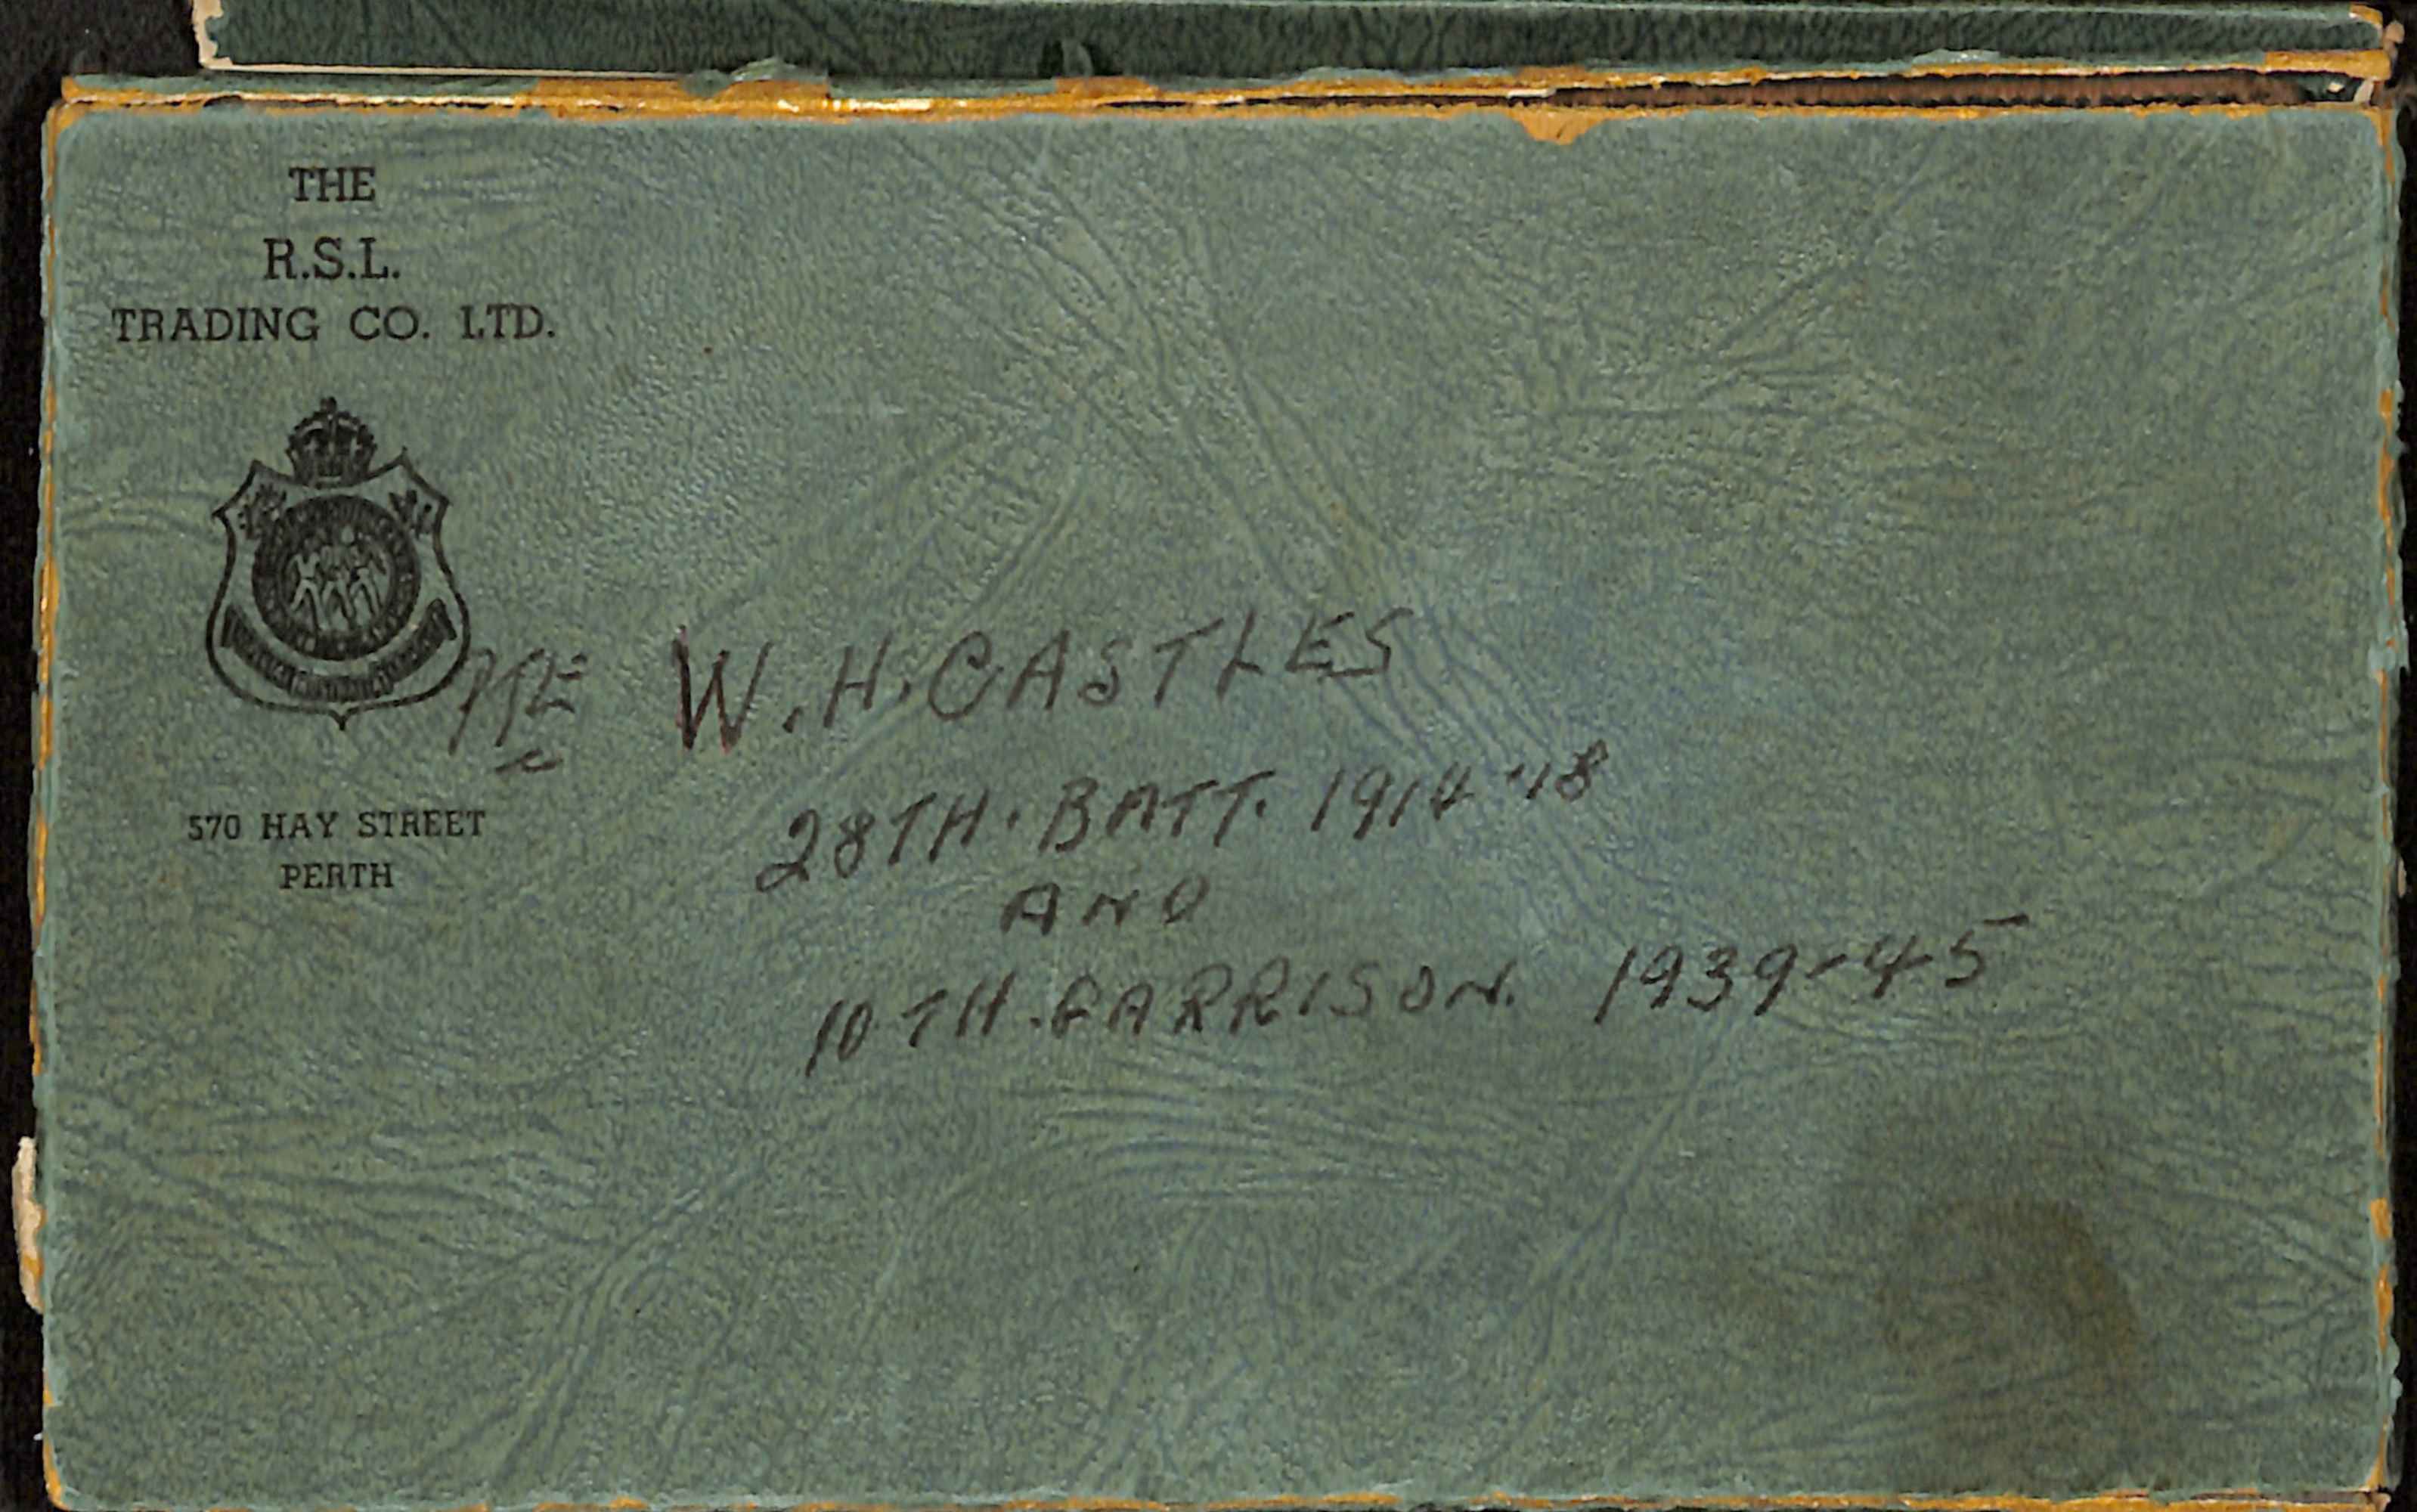 THE
R.S.L.
TRADING CO. LTD.
570 HAY STREET
PERTH
W.H. CASTLES
28TH. BATT. 1914-18
AND
10TH. GARRISON. 1939-45